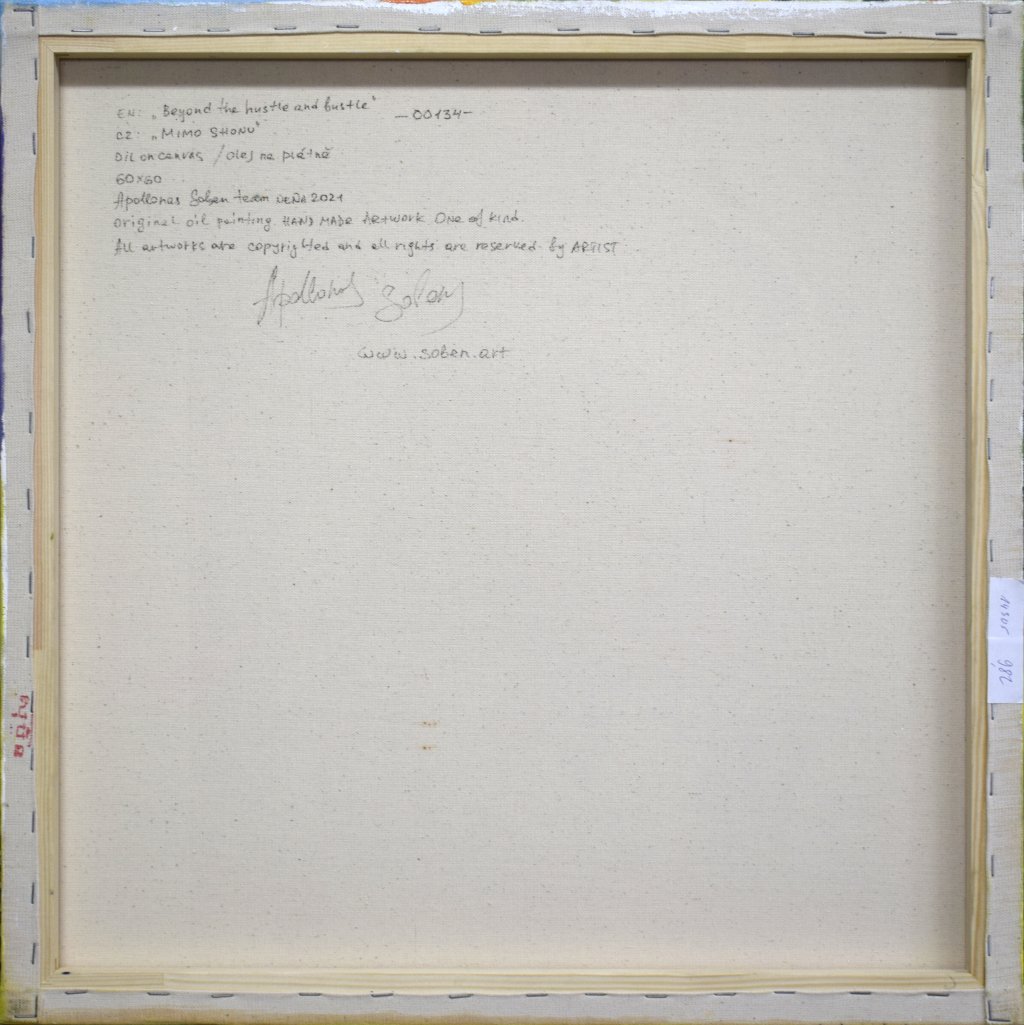 EN: „Beyond the hustle and bustle“ —00134—
CZ: „MIMO SHONU“
Oil on canvas / olej na plátně
60×60
Apollonas Soben team 2021
Original oil painting HAND MADE ARTWORK One of kind.
All artworks are copyrighted and all rights are reserved by ARTIST
Apollonas Soben
www.soben.art